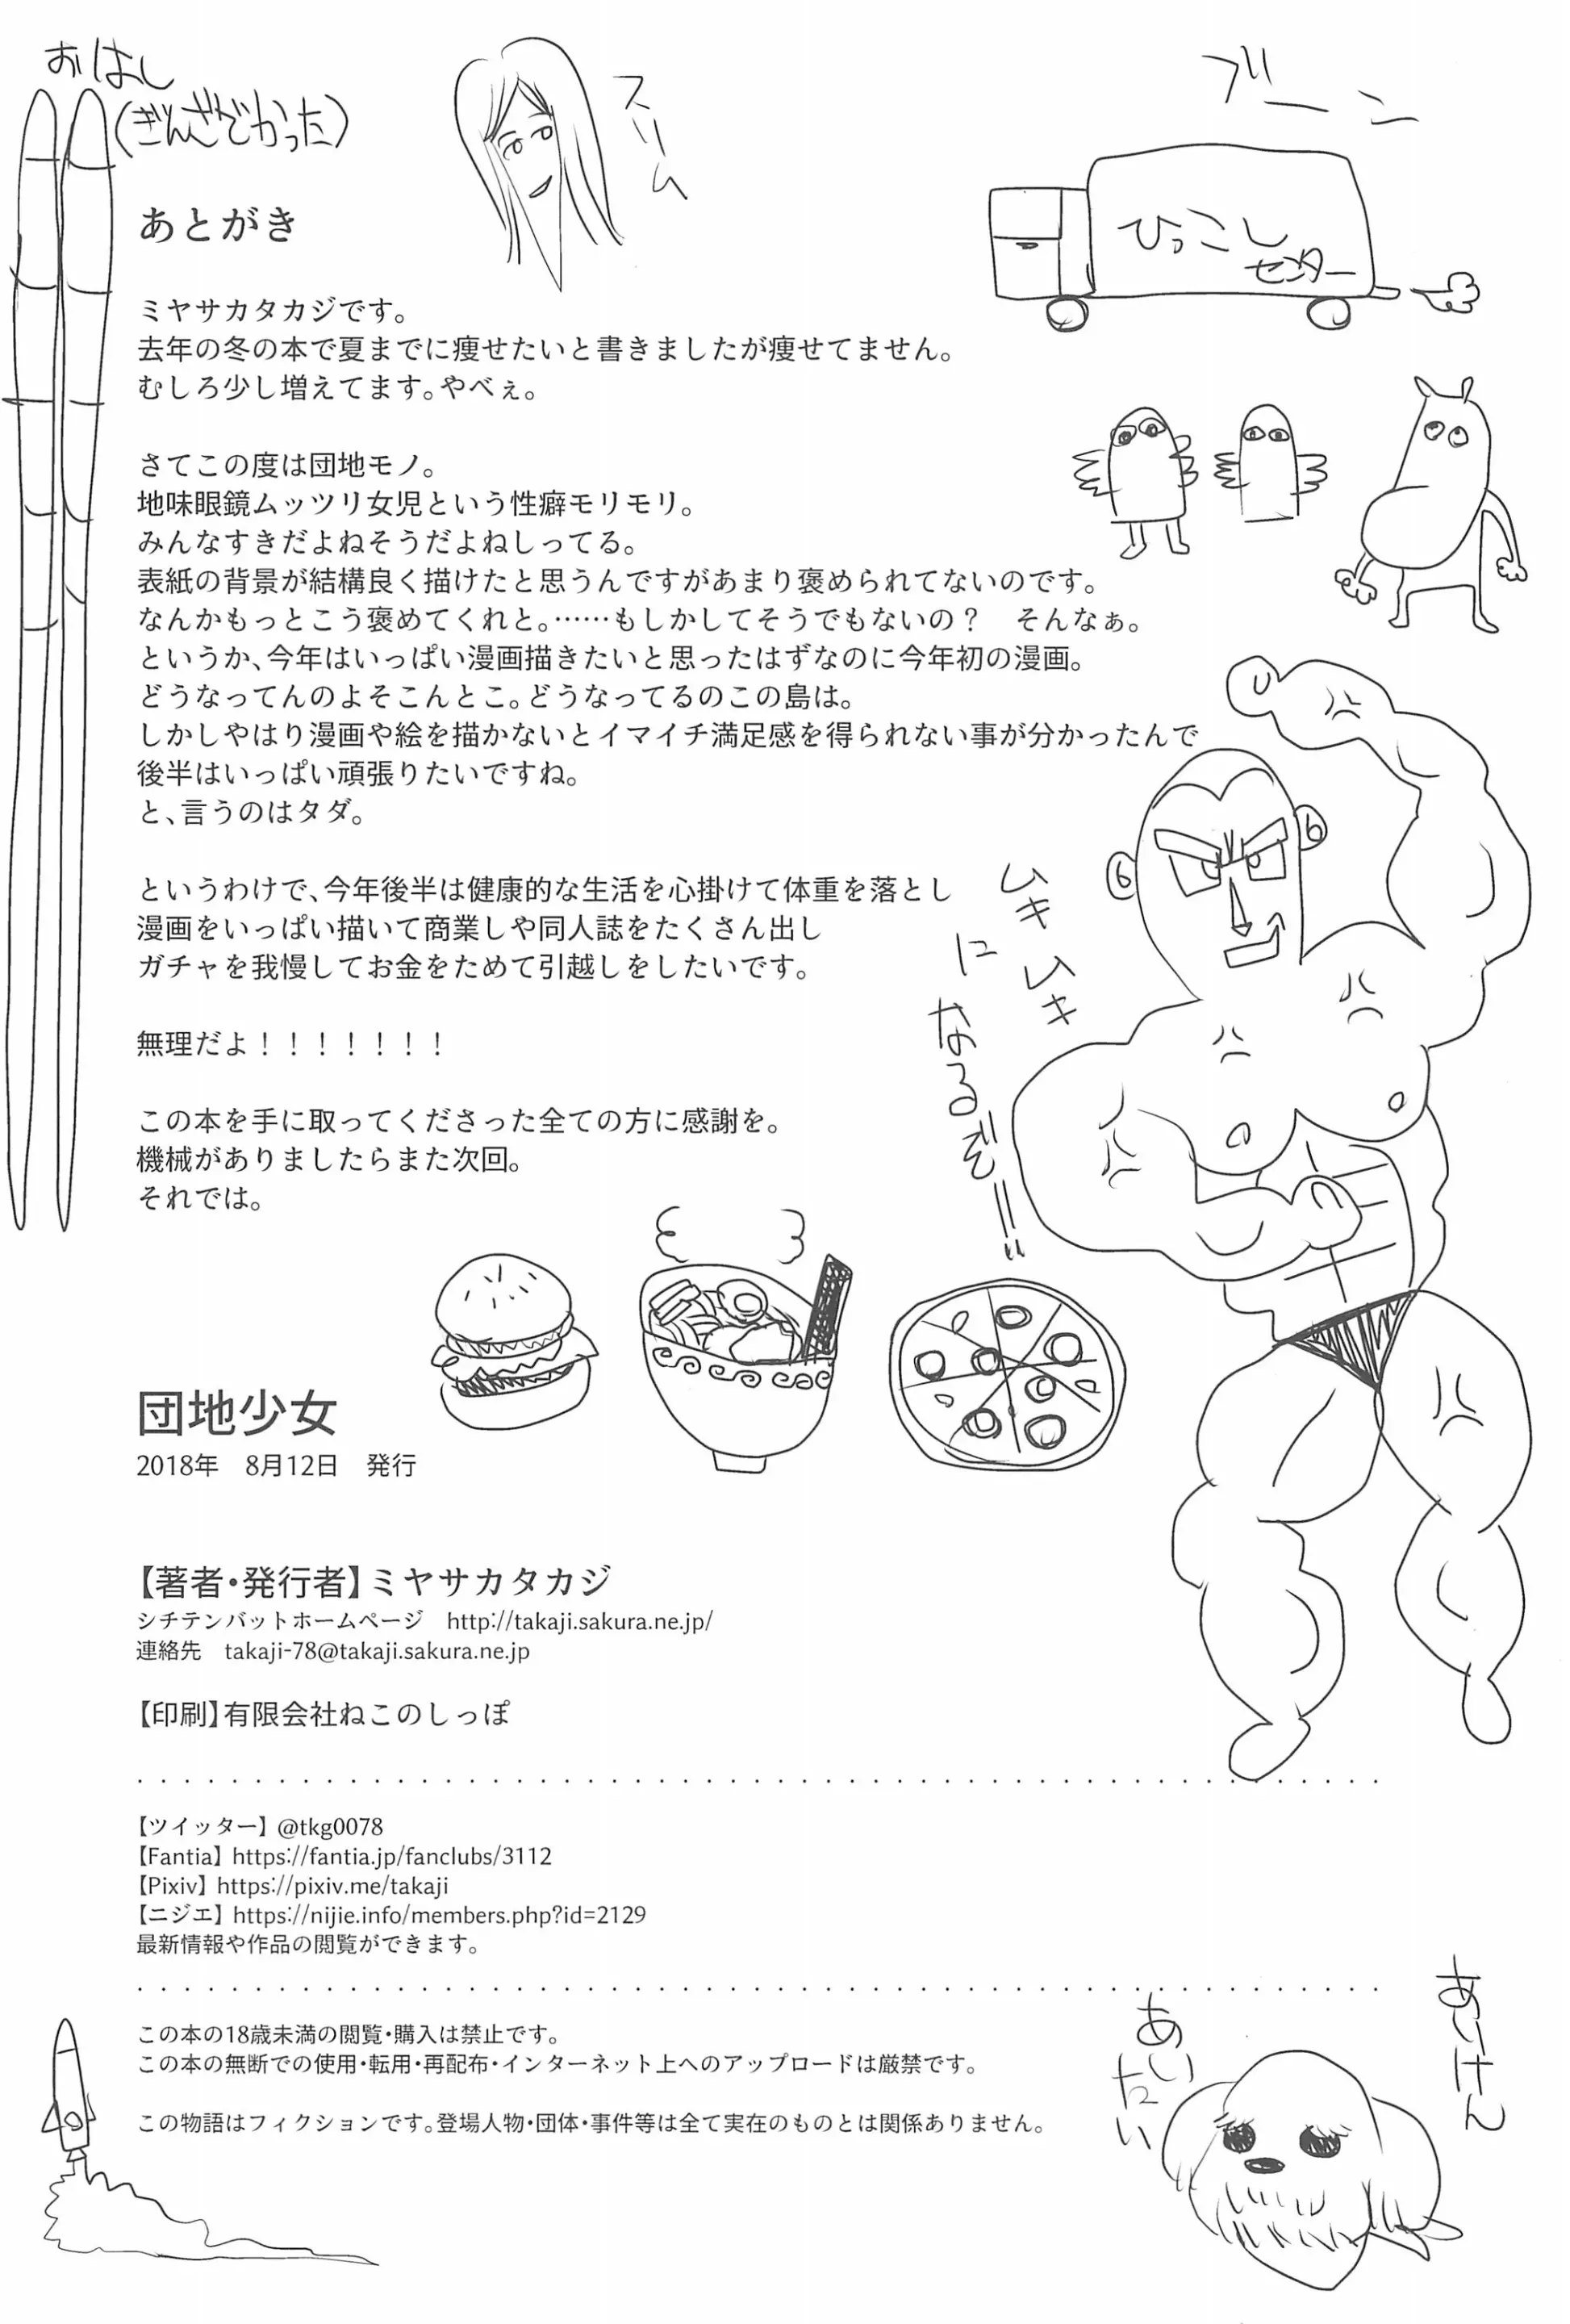 おはし
(ぎんざでかった)
スリム
ブーン
ひっこし
センター
あとがき
ミヤサカタカジです。
去年の冬の本で夏までに痩せたいと書きましたが痩せてません。
むしろ少し増えてます。やべぇ。
さてこの度は団地モノ。
地味眼鏡ムッツリ女児という性癖モリモリ。
みんなすきだよねそうだよねしってる。
表紙の背景が結構良く描けたと思うんですがあまり褒められてないのです。
なんかもっとこう褒めてくれと。……もしかしてそうでもないの？　そんなぁ。
というか、今年はいっぱい漫画描きたいと思ったはずなのに今年初の漫画。
どうなってんのよそこんとこ。どうなってるのこの島は。
しかしやはり漫画や絵を描かないとイマイチ満足感を得られない事が分かったんで
後半はいっぱい頑張りたいですね。
と、言うのはタダ。
というわけで、今年後半は健康的な生活を心掛けて体重を落とし
漫画をいっぱい描いて商業しや同人誌をたくさん出し
ガチャを我慢してお金をためて引越しをしたいです。
無理だよ！！！！！！！
この本を手に取ってくださった全ての方に感謝を。
機械がありましたらまた次回。
それでは。
ムキムキ
に
なるぞー!!
団地少女
2018年　8月12日　発行
【著者・発行者】ミヤサカタカジ
シチテンバットホームページ　http://takaji.sakura.ne.jp/
連絡先　takaji-78@takaji.sakura.ne.jp
【印刷】有限会社ねこのしっぽ
【ツイッター】@tkg0078
【Fantia】https://fantia.jp/fanclubs/3112
【Pixiv】https://pixiv.me/takaji
【ニジエ】https://nijie.info/members.php?id=2129
最新情報や作品の閲覧ができます。
この本の18歳未満の閲覧・購入は禁止です。
この本の無断での使用・転用・再配布・インターネット上へのアップロードは厳禁です。
この物語はフィクションです。登場人物・団体・事件等は全て実在のものとは関係ありません。
あいけん
あいたい